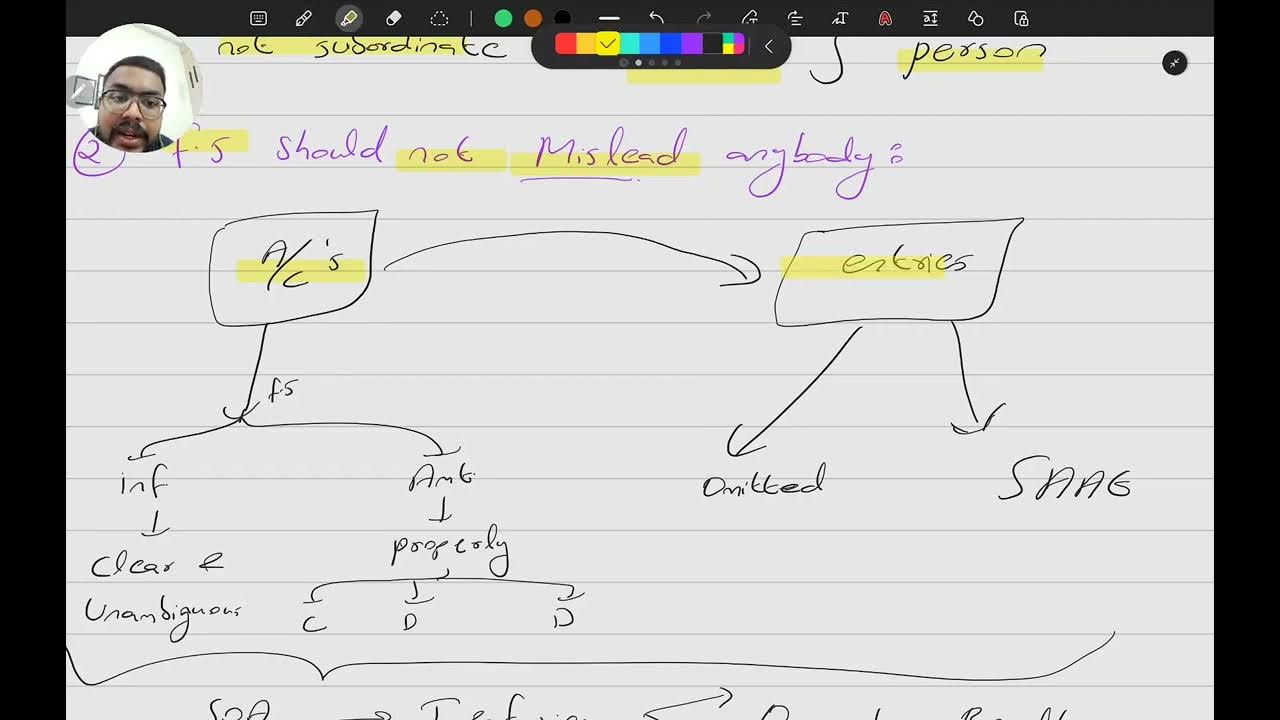 not subordinate person
② f.s should not Mislead anybody:
A/c's entries
f.s
inf Amt. Omitted SAAE
Clear & properly
Unambiguous C D D
SOA